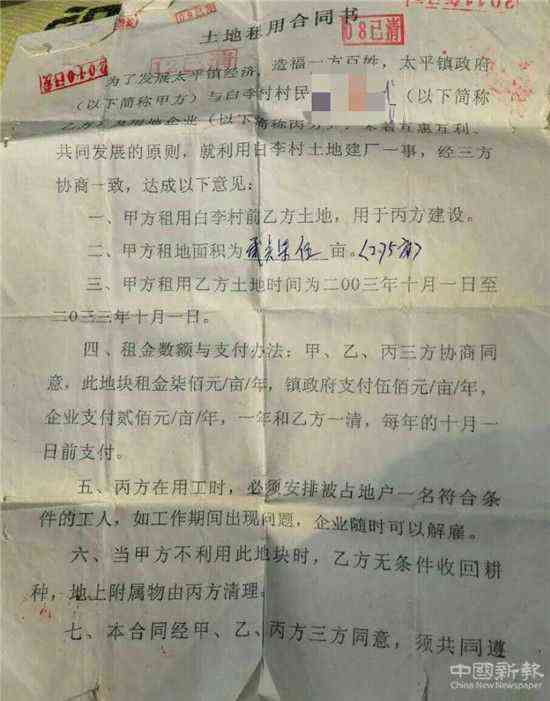 土地租用合同书
08已清
2010已清
为了发展太平镇经济，造福一方百姓，太平镇政府
（以下简称甲方）与白李村村民
（以下简称
共同发展的原则，就利用白李村土地建厂一事，经三方
协商一致，达成以下意见：
一、甲方租用白李村前乙方土地，用于丙方建设。
二、甲方租地面积为
亩。
三、甲方租用乙方土地时间为二00三年十月一日至
二0三三年十月一日。
四、租金数额与支付办法：甲、乙、丙三方协商同
意，此地块租金柒佰元/亩/年，镇政府支付伍佰元/亩/年，
企业支付贰佰元/亩/年，一年和乙方一清，每年的十月一
日前支付。
五、丙方在用工时，必须安排被占地户一名符合条
件的工人，如工作期间出现问题，企业随时可以解雇。
六、当甲方不利用此地块时，乙方无条件收回耕
种，地上附属物由丙方清理。
七、本合同经甲、乙、丙方三方同意，须共同遵
中國新報
China New Newspaper